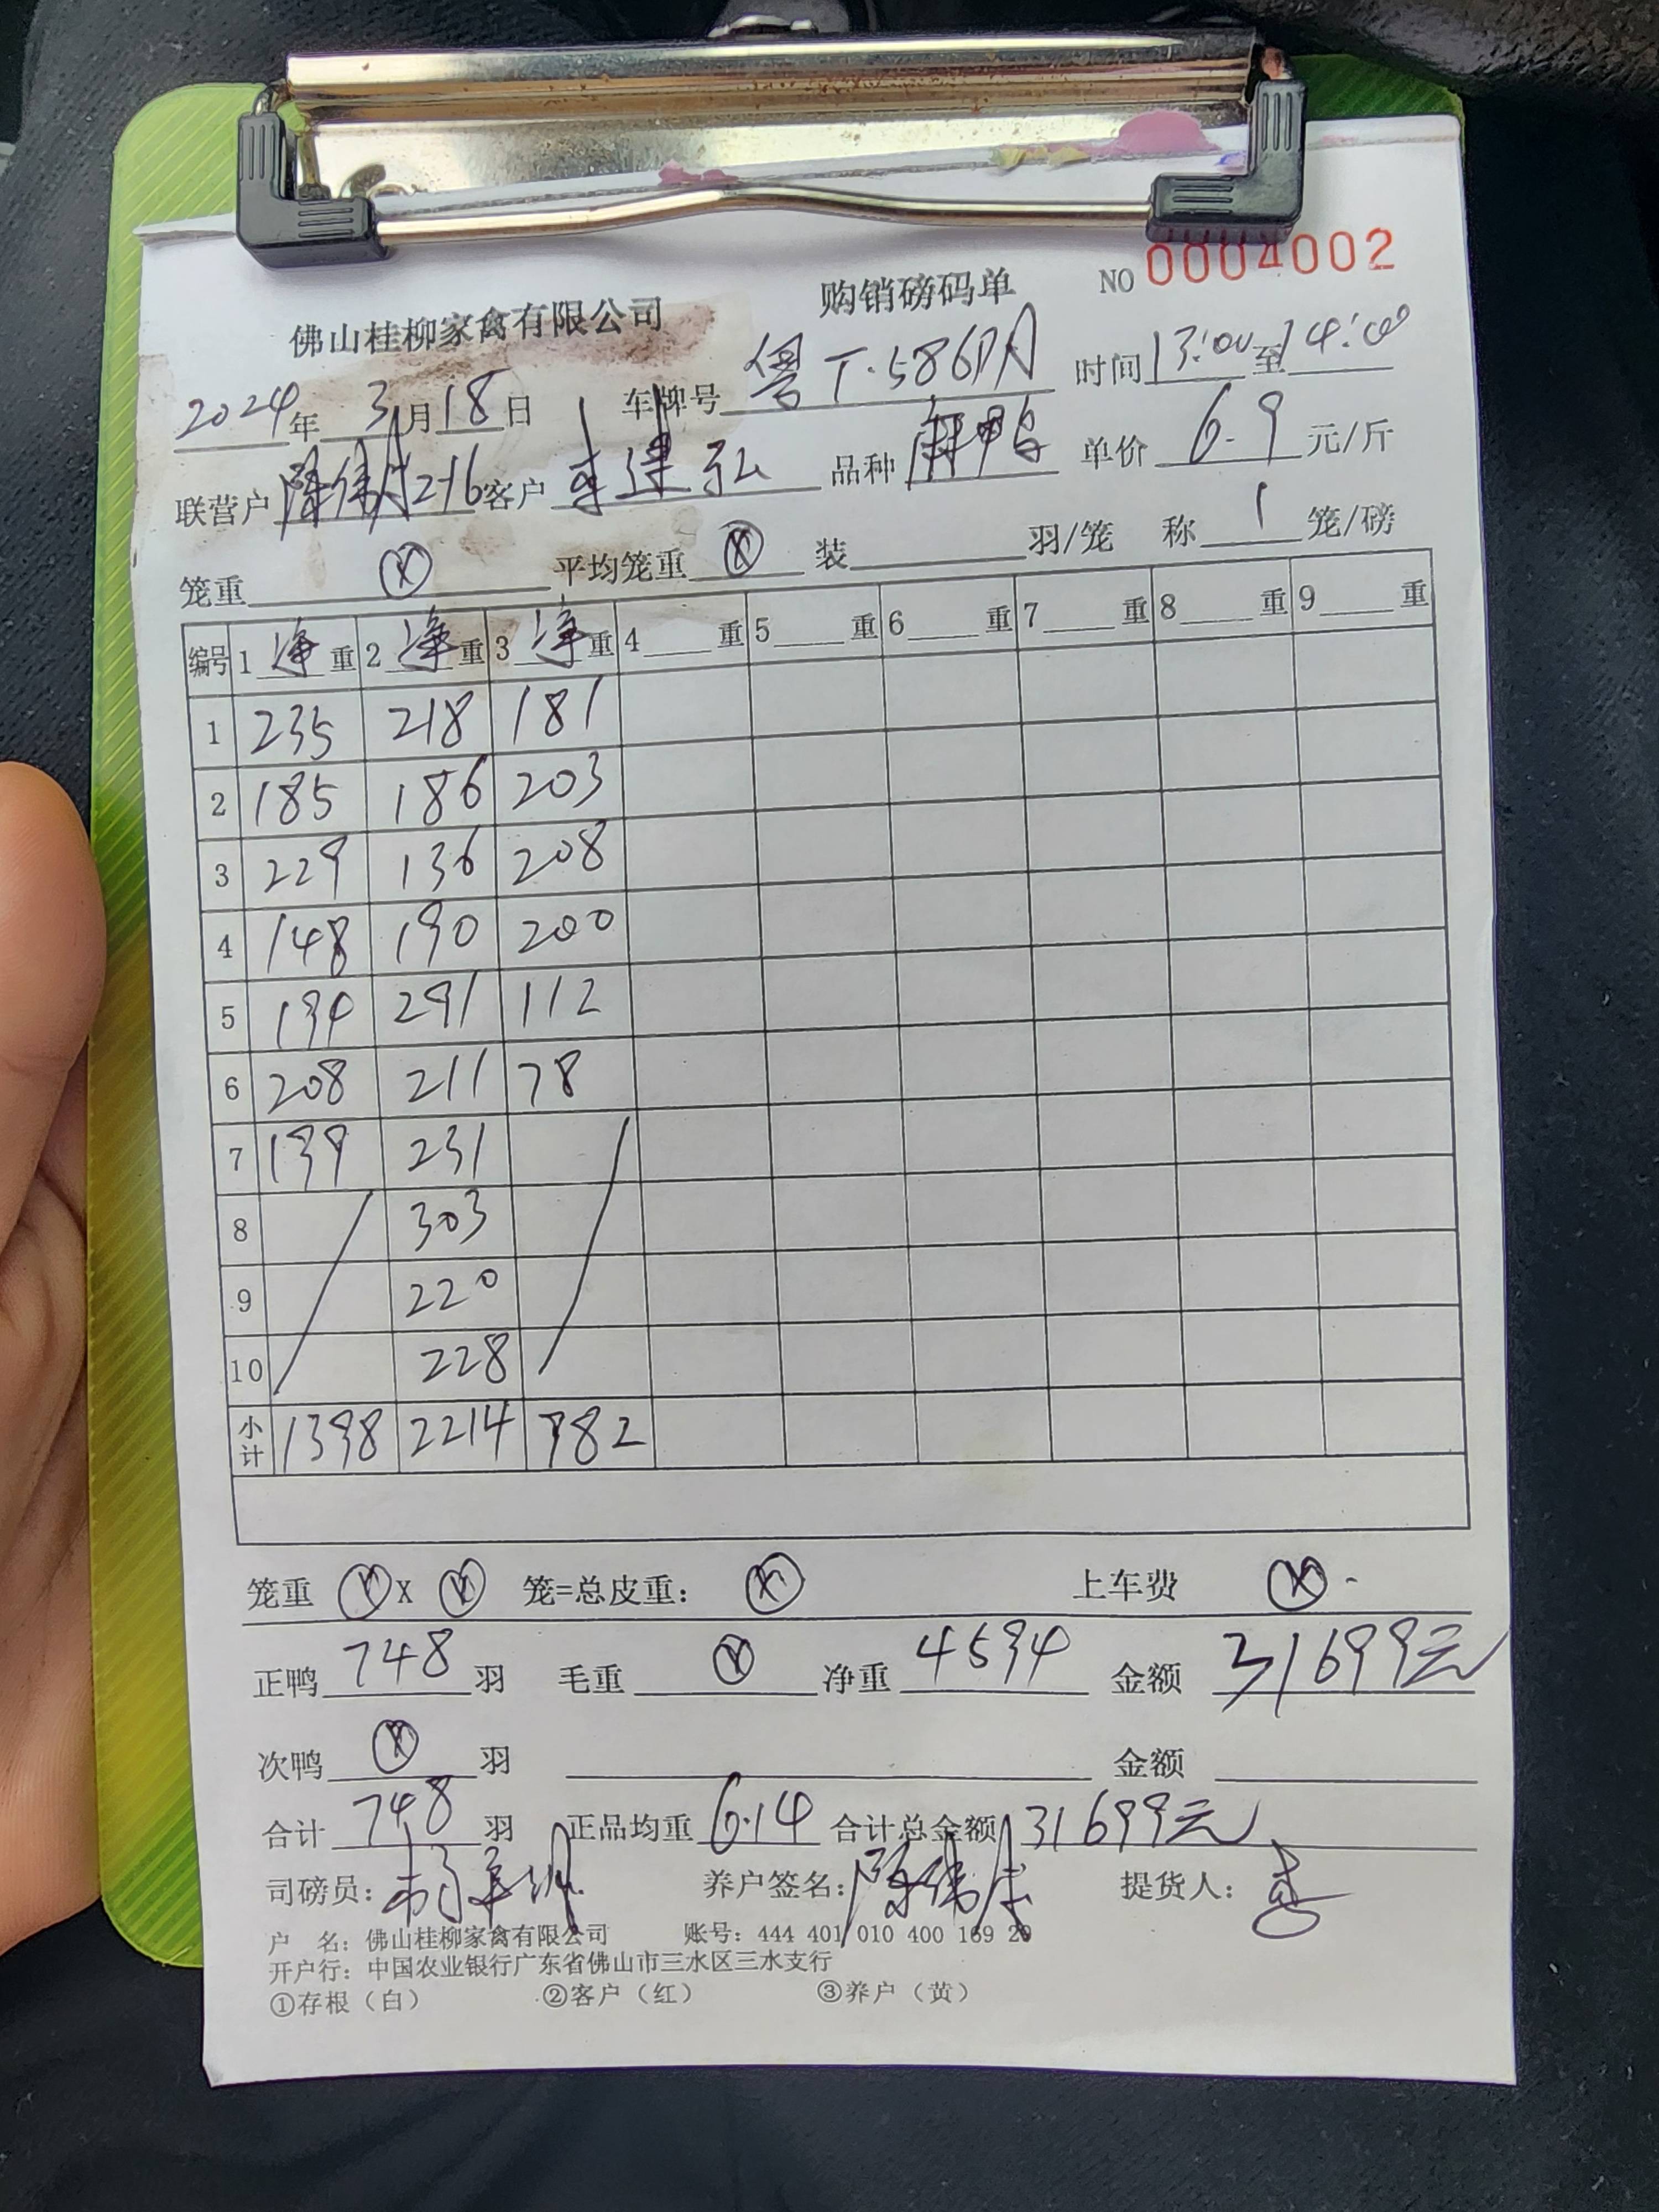 NO 0004002
佛山桂柳家禽有限公司 购销磅码单
2024年 3月18日 车牌号 粤T·586 时间 13:00 至 14:00
联营户 陈伟 2-16 客户 李建弘 品种 麻鸭 单价 6.9 元/斤
笼重 ⓧ 平均笼重 ⓧ 装 羽/笼 称 1 笼/磅
编号 1 净 重 2 净 重 3 净 重 4 重 5 重 6 重 7 重 8 重 9 重
1 235 218 181
2 185 186 203
3 229 136 208
4 148 190 200
5 194 291 112
6 208 211 78
7 199 231
8 303
9 220
10 228
小计 1398 2214 982
笼重 ⓧ X ⓧ 笼=总皮重: ⓧ 上车费 ⓧ
正鸭 748 羽 毛重 ⓧ 净重 4594 金额 31699元
次鸭 ⓧ 羽 金额
合计 748 羽 正品均重 6.14 合计总金额 31699元
司磅员: 养户签名: 陈伟 提货人:
户 名: 佛山桂柳家禽有限公司 账号: 444 401 010 400 169 20
开户行: 中国农业银行广东省佛山市三水区三水支行
①存根（白） ②客户（红） ③养户（黄）